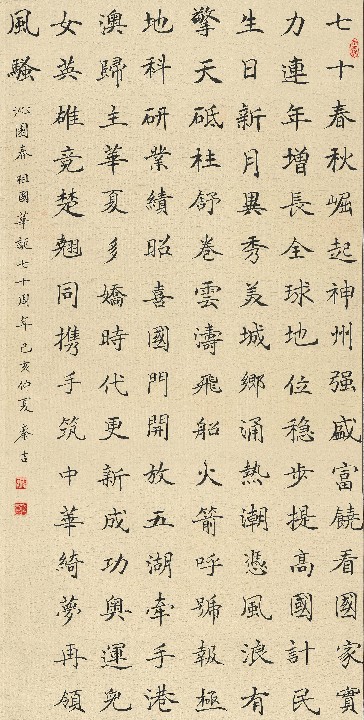 七十春秋崛起神州强盛富饒看國家實
力連年增長全球地位穩步提高國計民
生日新月異秀美城鄉涌熱潮憑風浪有
擎天砥柱舒卷雲濤飛船火箭呼號報極
地科研業績昭喜國門開放五湖牽手港
澳歸主華夏多嬌時代更新成功奥運兒
女英雄竟楚翹同携手筑中華綺夢再領
風騷
沁園春祖國華誕七十周年己亥伯夏秦古